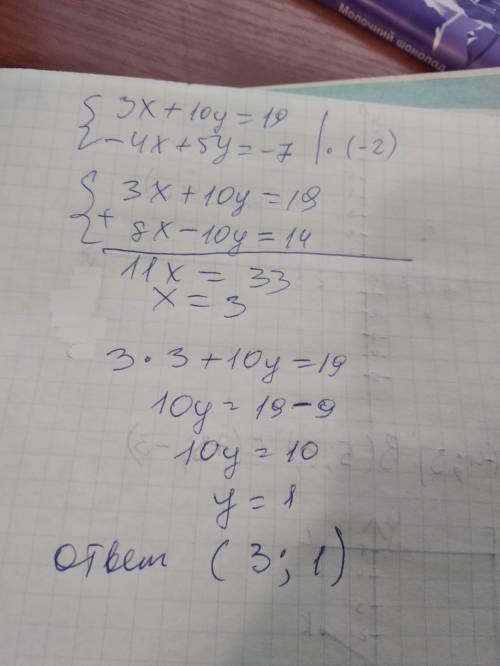 Молочний шоколад
3x + 10y = 19
-4x + 5y = -7 | · (-2)
3x + 10y = 19
+ 8x - 10y = 14
11x = 33
x = 3
3 · 3 + 10y = 19
10y = 19 - 9
10y = 10
y = 1
ответ (3; 1)